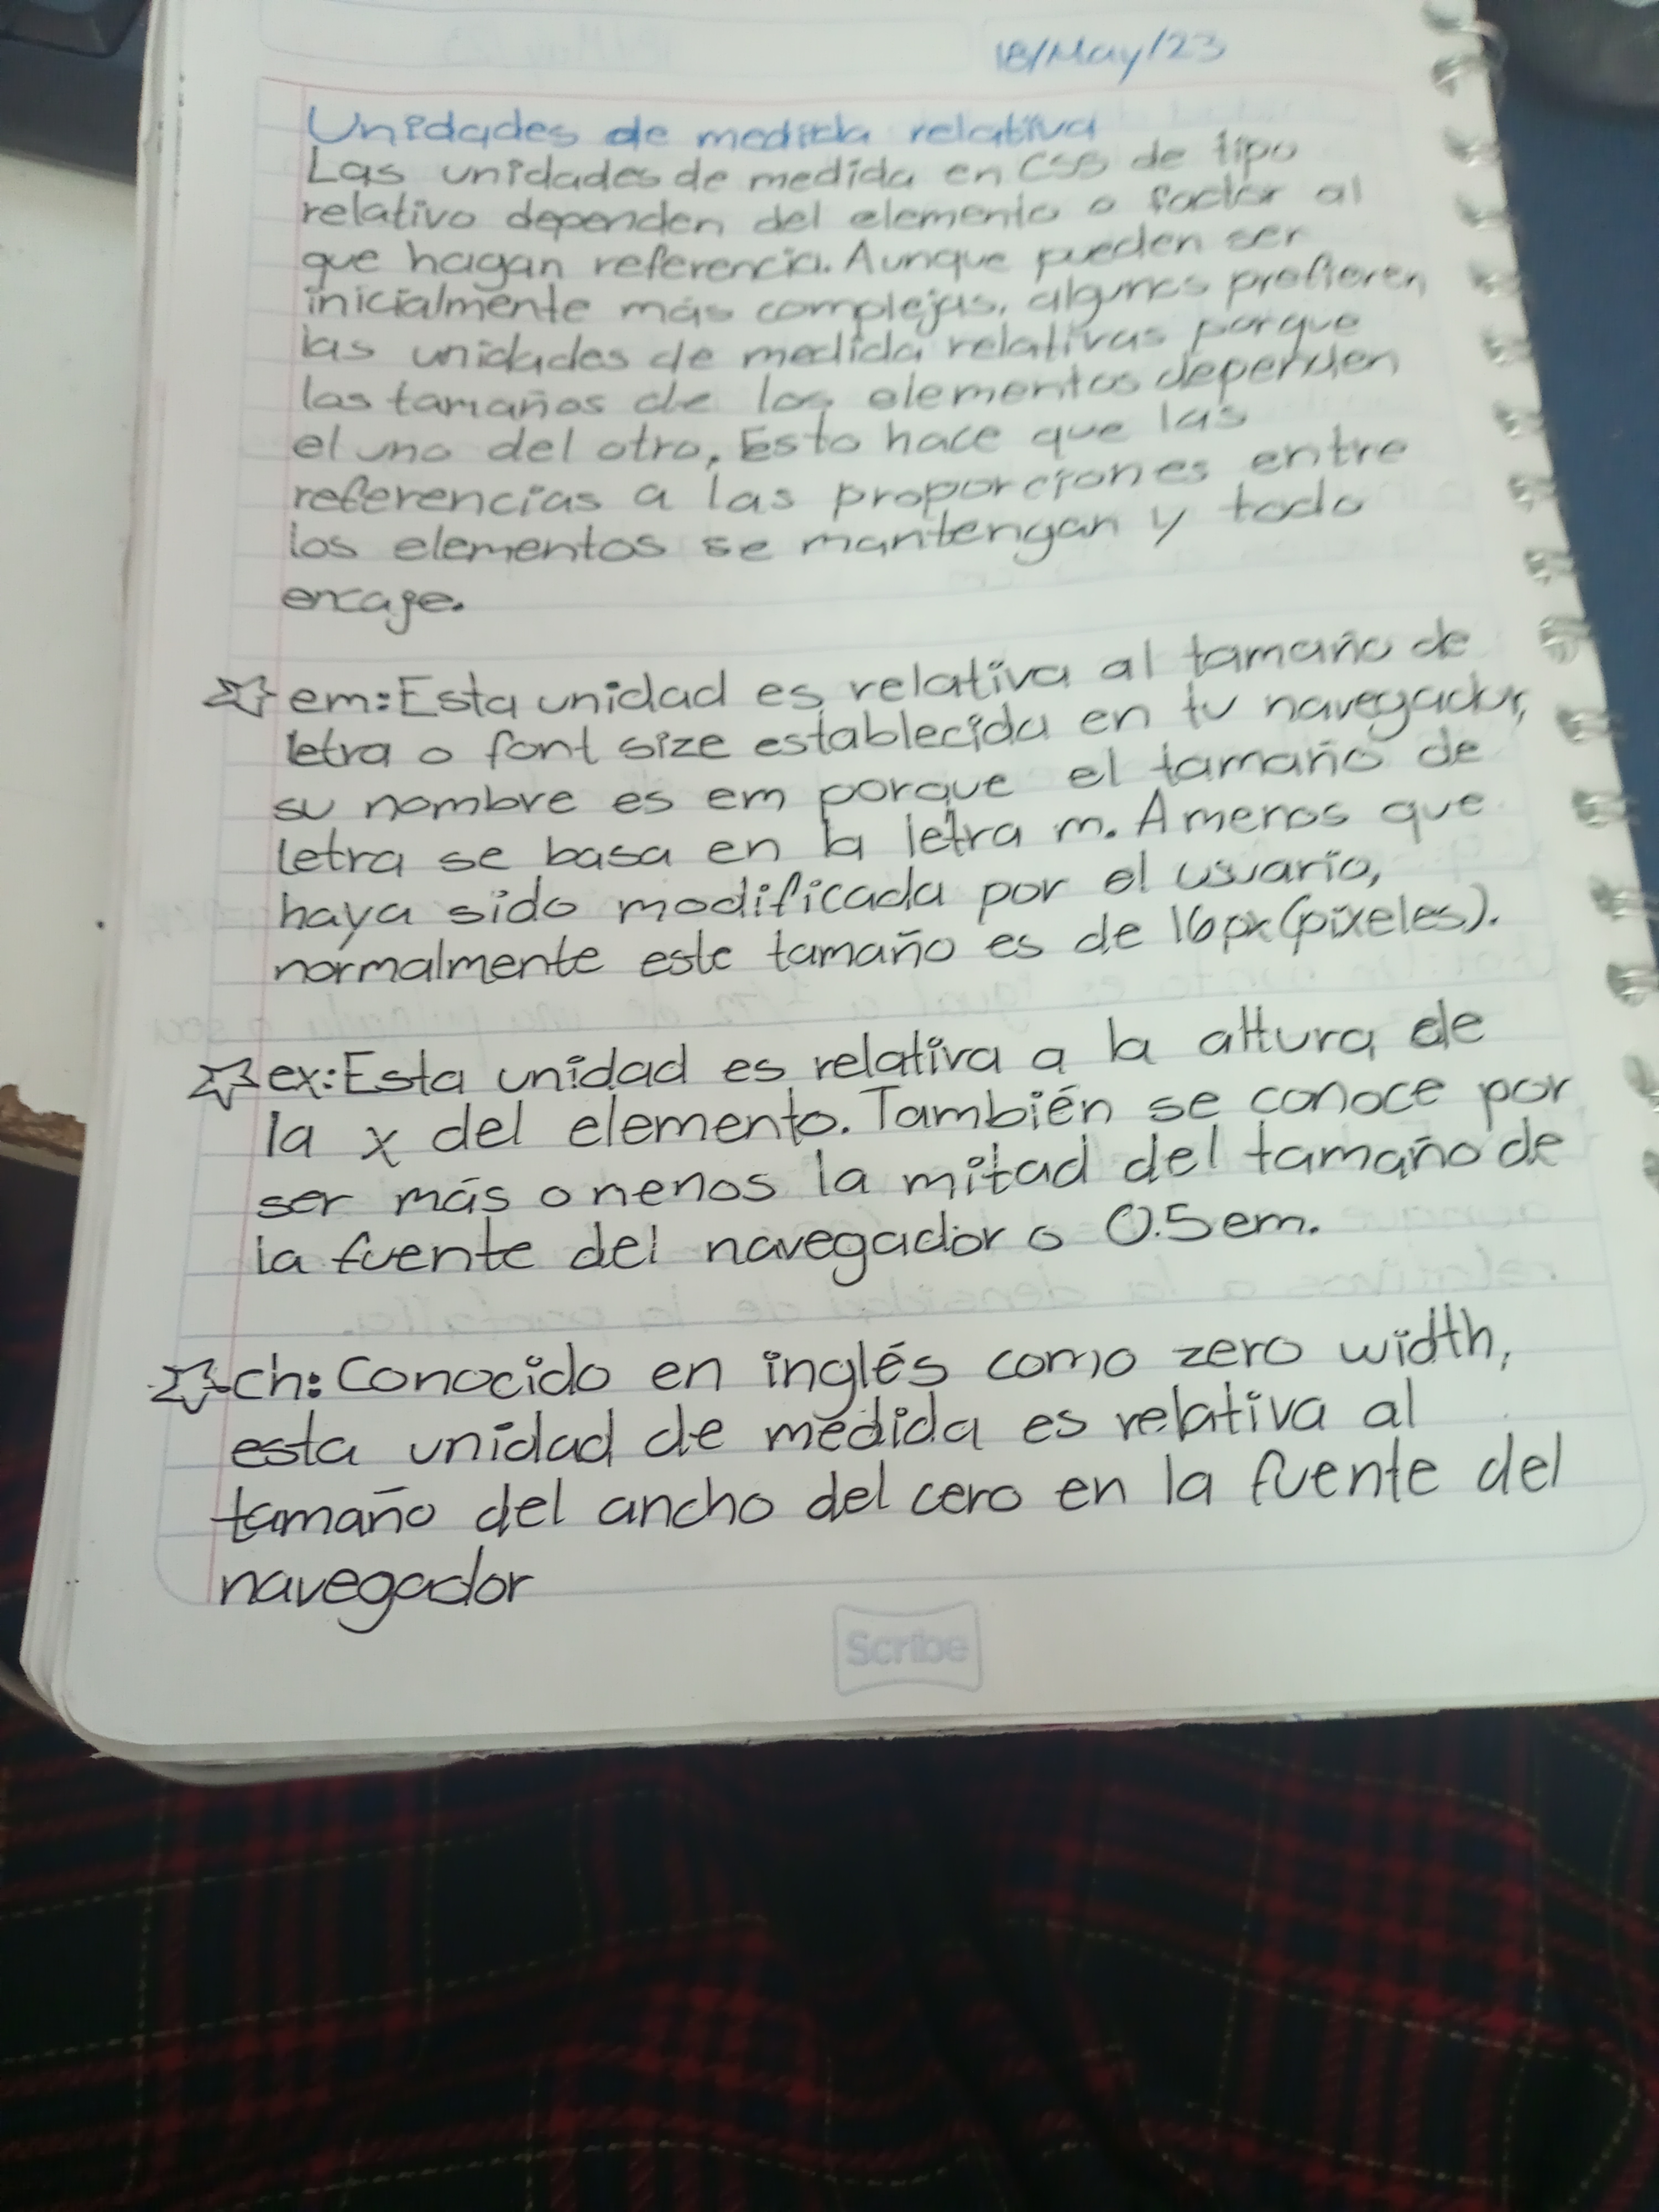 18/May/23
Unidades de medida relativa
Las unidades de medida en CSS de tipo
relativo dependen del elemento o factor al
que hagan referencia. Aunque pueden ser
inicialmente más complejas, algunos prefieren
las unidades de medida relativas porque
los tamaños de los elementos dependen
el uno del otro, Esto hace que las
referencias a las proporciones entre
los elementos se mantengan y todo
encaje.
em: Esta unidad es relativa al tamaño de
letra o font size establecida en tu navegador,
su nombre es em porque el tamaño de
letra se basa en la letra m. A menos que
haya sido modificada por el usuario,
normalmente este tamaño es de 16px (pixeles).
ex: Esta unidad es relativa a la altura de
la x del elemento. También se conoce por
ser más o nenos la mitad del tamaño de
la fuente del navegador o 0.5em.
ch: Conocido en inglés como zero width,
esta unidad de medida es relativa al
tamaño del ancho del cero en la fuente del
navegador
Scribe